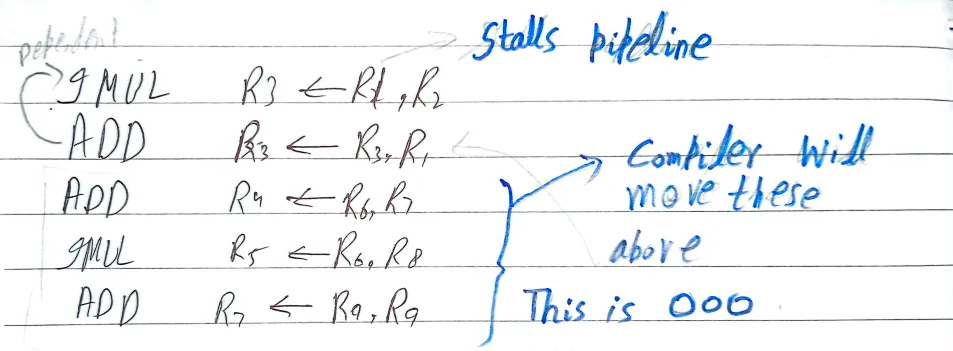 Dependent
Stalls pipeline
IMUL R3 ← R1, R2
ADD R3 ← R3, R1
ADD R4 ← R6, R7
IMUL R5 ← R6, R8
ADD R7 ← R9, R9
Compiler will
move these
above
This is OOO